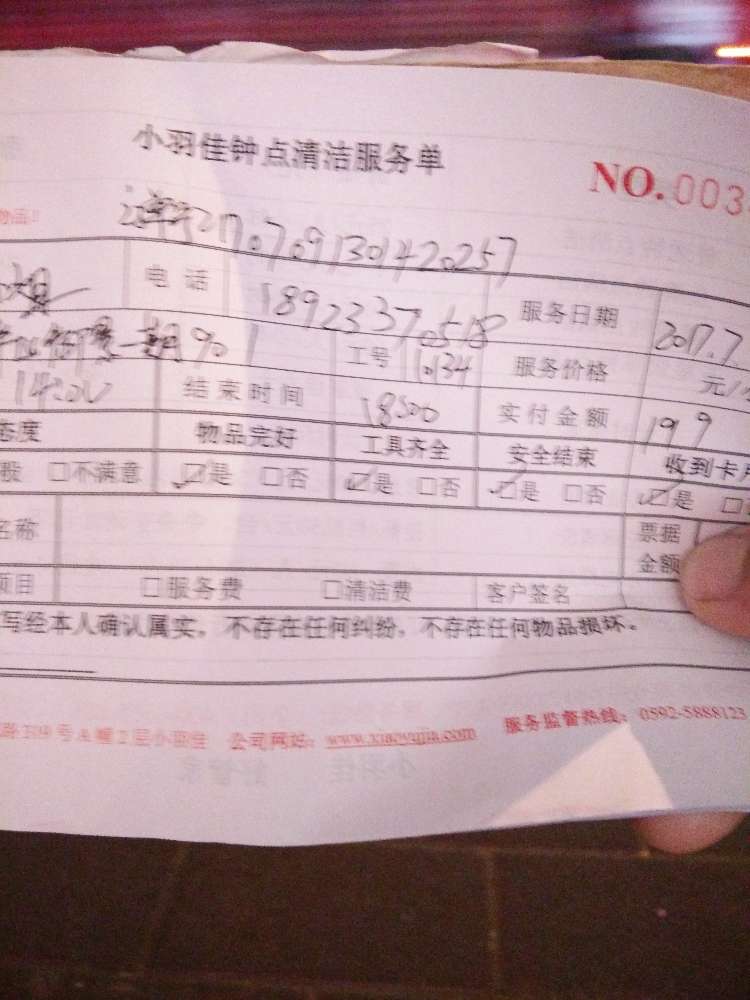 小羽佳钟点清洁服务单
NO.003
物品!
1707091301420257
电话 18923370518 服务日期 2017.7
一期 901 工号 10134 服务价格 元/
14:00 结束时间 18:00 实付金额 199
态度 物品完好 工具齐全 安全结束 收到卡片
般 □不满意 ☑是 □否 ☑是 □否 ☑是 □否 ☑是 □
名称 票据
金额
项目 □服务费 □清洁费 客户签名
写经本人确认属实，不存在任何纠纷，不存在任何物品损坏。
路309号A幢2层小羽佳 公司网站：www.xiaoyujia.com 服务监督热线：0592-5888123